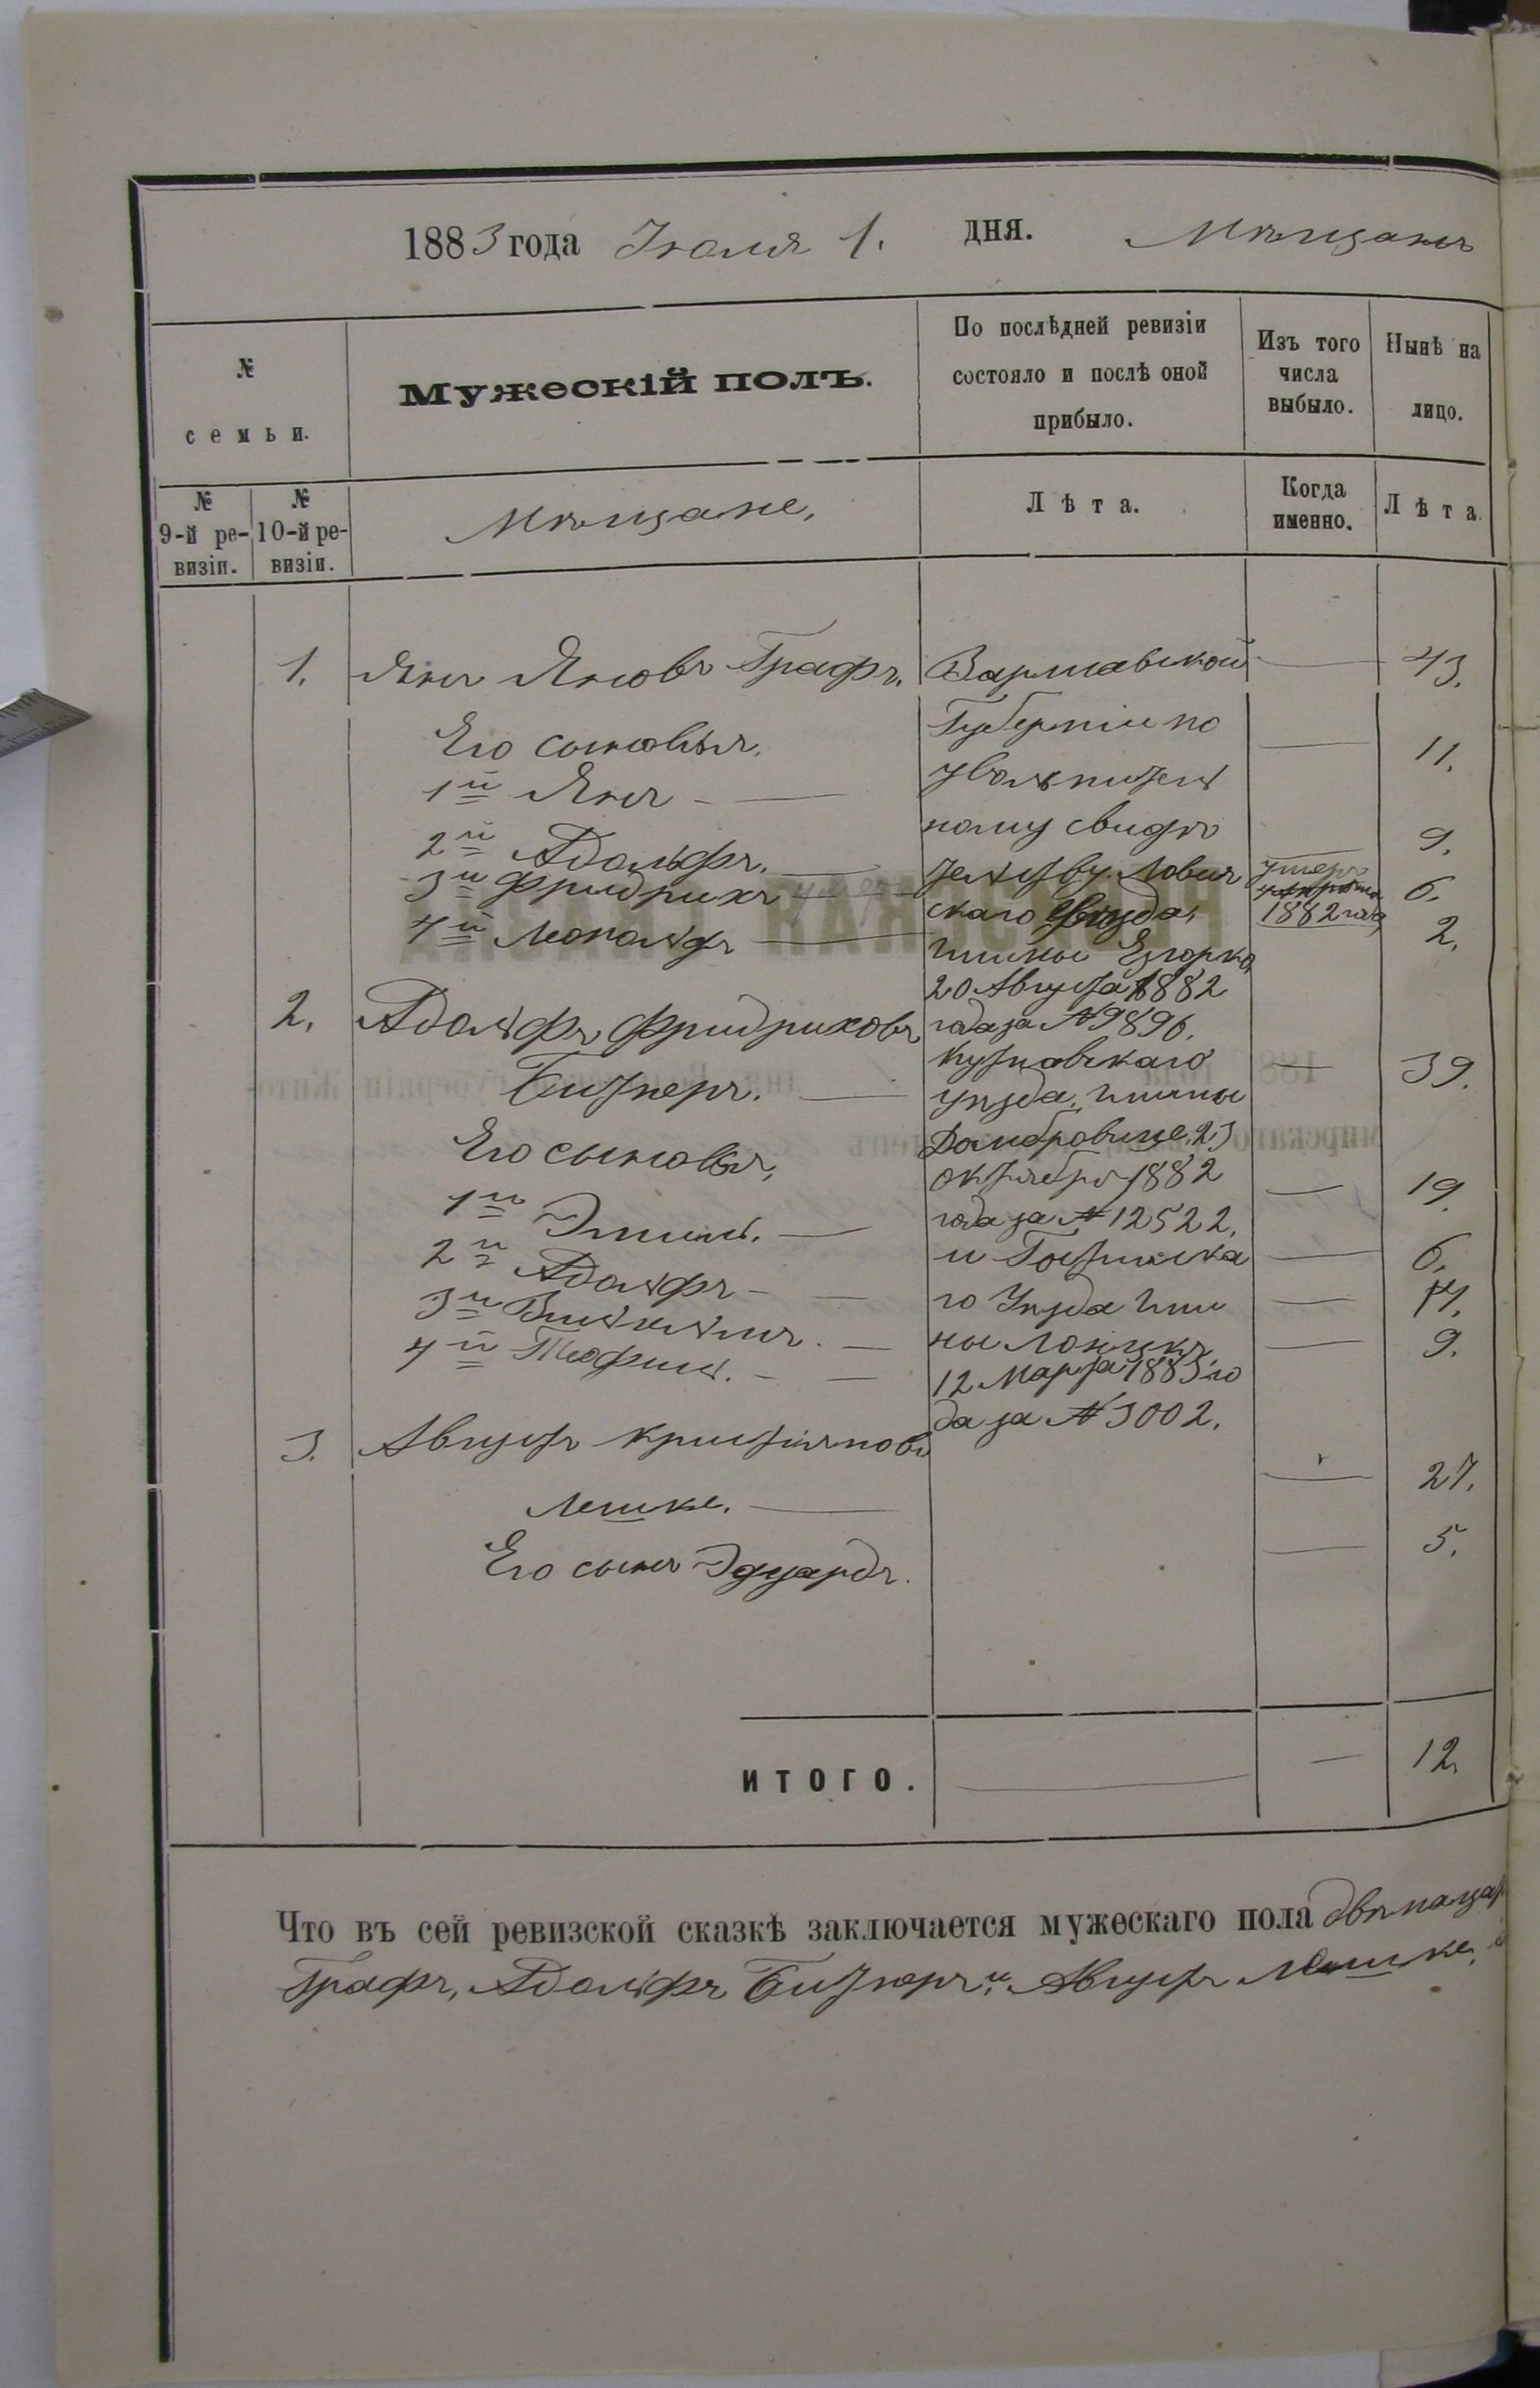 1883 года Іюля 1. дня. Мѣщанъ
№ семьи.
Мужескій полъ.
По послѣдней ревизіи состояло и послѣ оной прибыло.
Изъ того числа выбыло.
Нынѣ на лицо.
№ 9-й ревизіи.
№ 10-й ревизіи.
Мѣщане,
Лѣта.
Когда именно.
Лѣта
1. Янъ Яковъ Графъ. Варшавской — 43.
Его сыновья, Губерніи по
1й Янъ — увольнитель — 11.
2й Адольфъ. — ному свидѣ — 9.
3й Фридрихъ — тельству. Лович умеръ 6.
1882 года
4й Леопольдъ — скаго уѣзда, 2.
гмины
20 Августа 1882
2. Адольфъ Фридриховъ года за №9896.
Битнеръ. — Кутновскаго — 39.
уѣзда, гмины
Его сыновья, Домбровице, 23
октября 1882
1й Эмиль. — года за № 12522. — 19.
2й Адольфъ — и Гостынска — 6.
3й Вильгельмъ. — го Уѣзда гми — 14.
4й Теофилъ. — ны — 9.
12 Марта 1883 го
да за № 3002.
3. Августъ Христіановъ
Лешке. — 27.
Его сынъ Эдуардъ. — 5.
ИТОГО. — — 12.
Что въ сей ревизской сказкѣ заключается мужескаго пола двѣнадцат
Графъ, Адольфъ Битнеръ и Августъ Лешке,